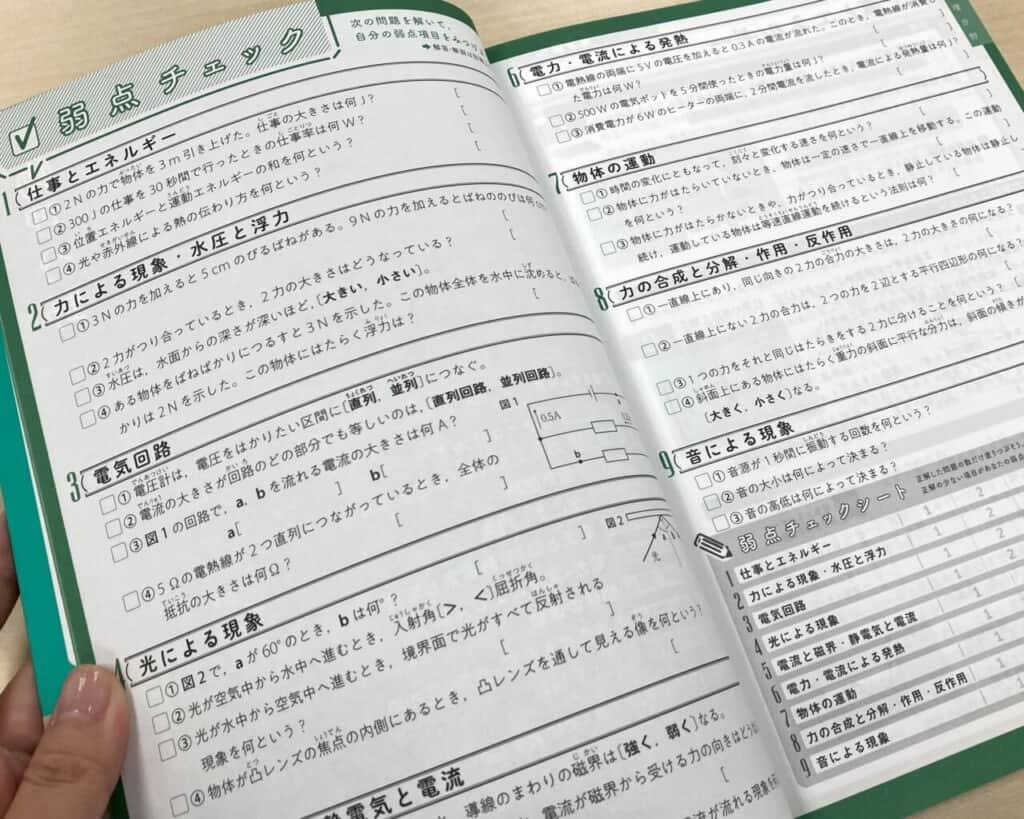 弱点チェック
次の問題を解いて，
自分の弱点項目をみつけ
1 仕事とエネルギー
① 2Nの力で物体を3m引き上げた。仕事の大きさは何J？
② 300Jの仕事を30秒間で行ったときの仕事率は何W？
③ 位置エネルギーと運動エネルギーの和を何という？
④ 光や赤外線による熱の伝わり方を何という？
2 力による現象・水圧と浮力
① 3Nの力を加えると5cmのびるばねがある。9Nの力を加えるとばねののびは何cm
② 2力がつり合っているとき，2力の大きさはどうなっている？
③ 水圧は，水面からの深さが深いほど，〔大きい，小さい〕。
④ ある物体をばねばかりにつるすと3Nを示した。この物体全体を水中に沈めると，
かりは2Nを示した。この物体にはたらく浮力は？
3 電気回路
① 電圧計は，電圧をはかりたい区間に〔直列，並列〕につなぐ。
② 電流の大きさが回路のどの部分でも等しいのは，〔直列回路，並列回路〕。
③ 図1の回路で，a，bを流れる電流の大きさは何A？
a[ ] b[ ]
図1
0.5A
a
b
④ 5Ωの電熱線が2つ直列につながっているとき，全体の
抵抗の大きさは何Ω？
4 光による現象
① 図2で，aが60°のとき，bは何°？
② 光が空気中から水中へ進むとき，入射角〔＞，＜〕屈折角。
③ 光が水中から空気中へ進むとき，境界面で光がすべて反射される
現象を何という？
④ 物体が凸レンズの焦点の内側にあるとき，凸レンズを通して見える像を何という？
図2
光
静電気と電流
導線のまわりの磁界は〔強く，弱く〕なる。
電流が磁界から受ける力の向きは
電流が流れる現象を
6 電力・電流による発熱
① 電熱線の両端に5Vの電圧を加えると0.3Aの電流が流れた。このとき，電熱線が消費し
た電力は何W？
② 500Wの電気ポットを5分間使ったときの電力量は何J？
③ 消費電力が6Wのヒーターの両端に，2分間電流を流したとき，電流による発熱量は何J？
7 物体の運動
① 時間の変化にともなって，刻々と変化する速さを何という？
② 物体に力がはたらいていないとき，物体は一定の速さで一直線上を移動する。この運動
を何という？
③ 物体に力がはたらかないときや，力がつり合っているとき，静止している物体は静止し
続け，運動している物体は等速直線運動を続けるという法則は何？
8 力の合成と分解・作用・反作用
① 一直線上にあり，同じ向きの2力の合力の大きさは，2力の大きさの何になる？
② 一直線上にない2力の合力は，2つの力を2辺とする平行四辺形の何になる？
③ 1つの力をそれと同じはたらきをする2力に分けることを何という？
④ 斜面上にある物体にはたらく重力の斜面に平行な分力は，斜面の傾きが
〔大きく，小さく〕なる。
9 音による現象
① 音源が1秒間に振動する回数を何という？
② 音の大小は何によって決まる？
③ 音の高低は何によって決まる？
弱点チェックシート
正解した問題の数だけ塗りつぶそう。
正解の少ない項目があなたの弱点
1 仕事とエネルギー
2 力による現象・水圧と浮力
3 電気回路
4 光による現象
5 電流と磁界・静電気と電流
6 電力・電流による発熱
7 物体の運動
8 力の合成と分解・作用・反作用
9 音による現象